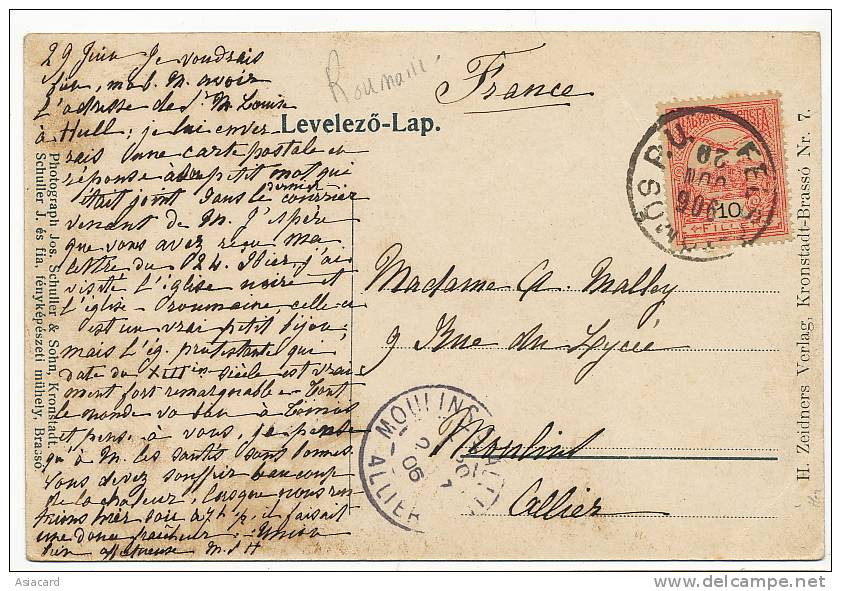 29 Juin Je voudrais
bien, ma b. M. avoir
l'adresse de Sr M. Louise
à Hull; je lui enver
rais une carte postale en
réponse à petit mot qui
était joint dans le dernier courrier
venant de M. J'espère
que vous avez reçu ma
lettre du 24. Hier, j'ai
visité l'Eglise noire et
l'église roumaine, celle-ci
est un vrai petit bijou
mais l'ég. protestante qui
date du XIII siècle est vrai
ment fort remarquable. Tout
le monde va bien à
et pense à vous, je pense
qu'à M. les santés sont bonnes.
Vous devez souffrir beaucoup
de la chaleur; lorsque nous ren
trions hier soir à 7h ½, il faisait
une douce fraîcheur. Union
bien affectueuse M.S H
Photograph Jos. Schuller & Sohn, Kronstadt.
Schuller J. és fia, fényképészeti műhely, Brassó
Roumanie
France
Levelező-Lap.
MAGYAR KIR. POSTA
10
FILLÉR
P.U.
906
JUN
29
Madame A. Malley
9 Rue du Lycée
Moulins
Allier
MOULINS
ALLIER
06
H. Zeidners Verlag, Kronstadt-Brassó Nr. 7.
Asiacard
www.delcampe.net